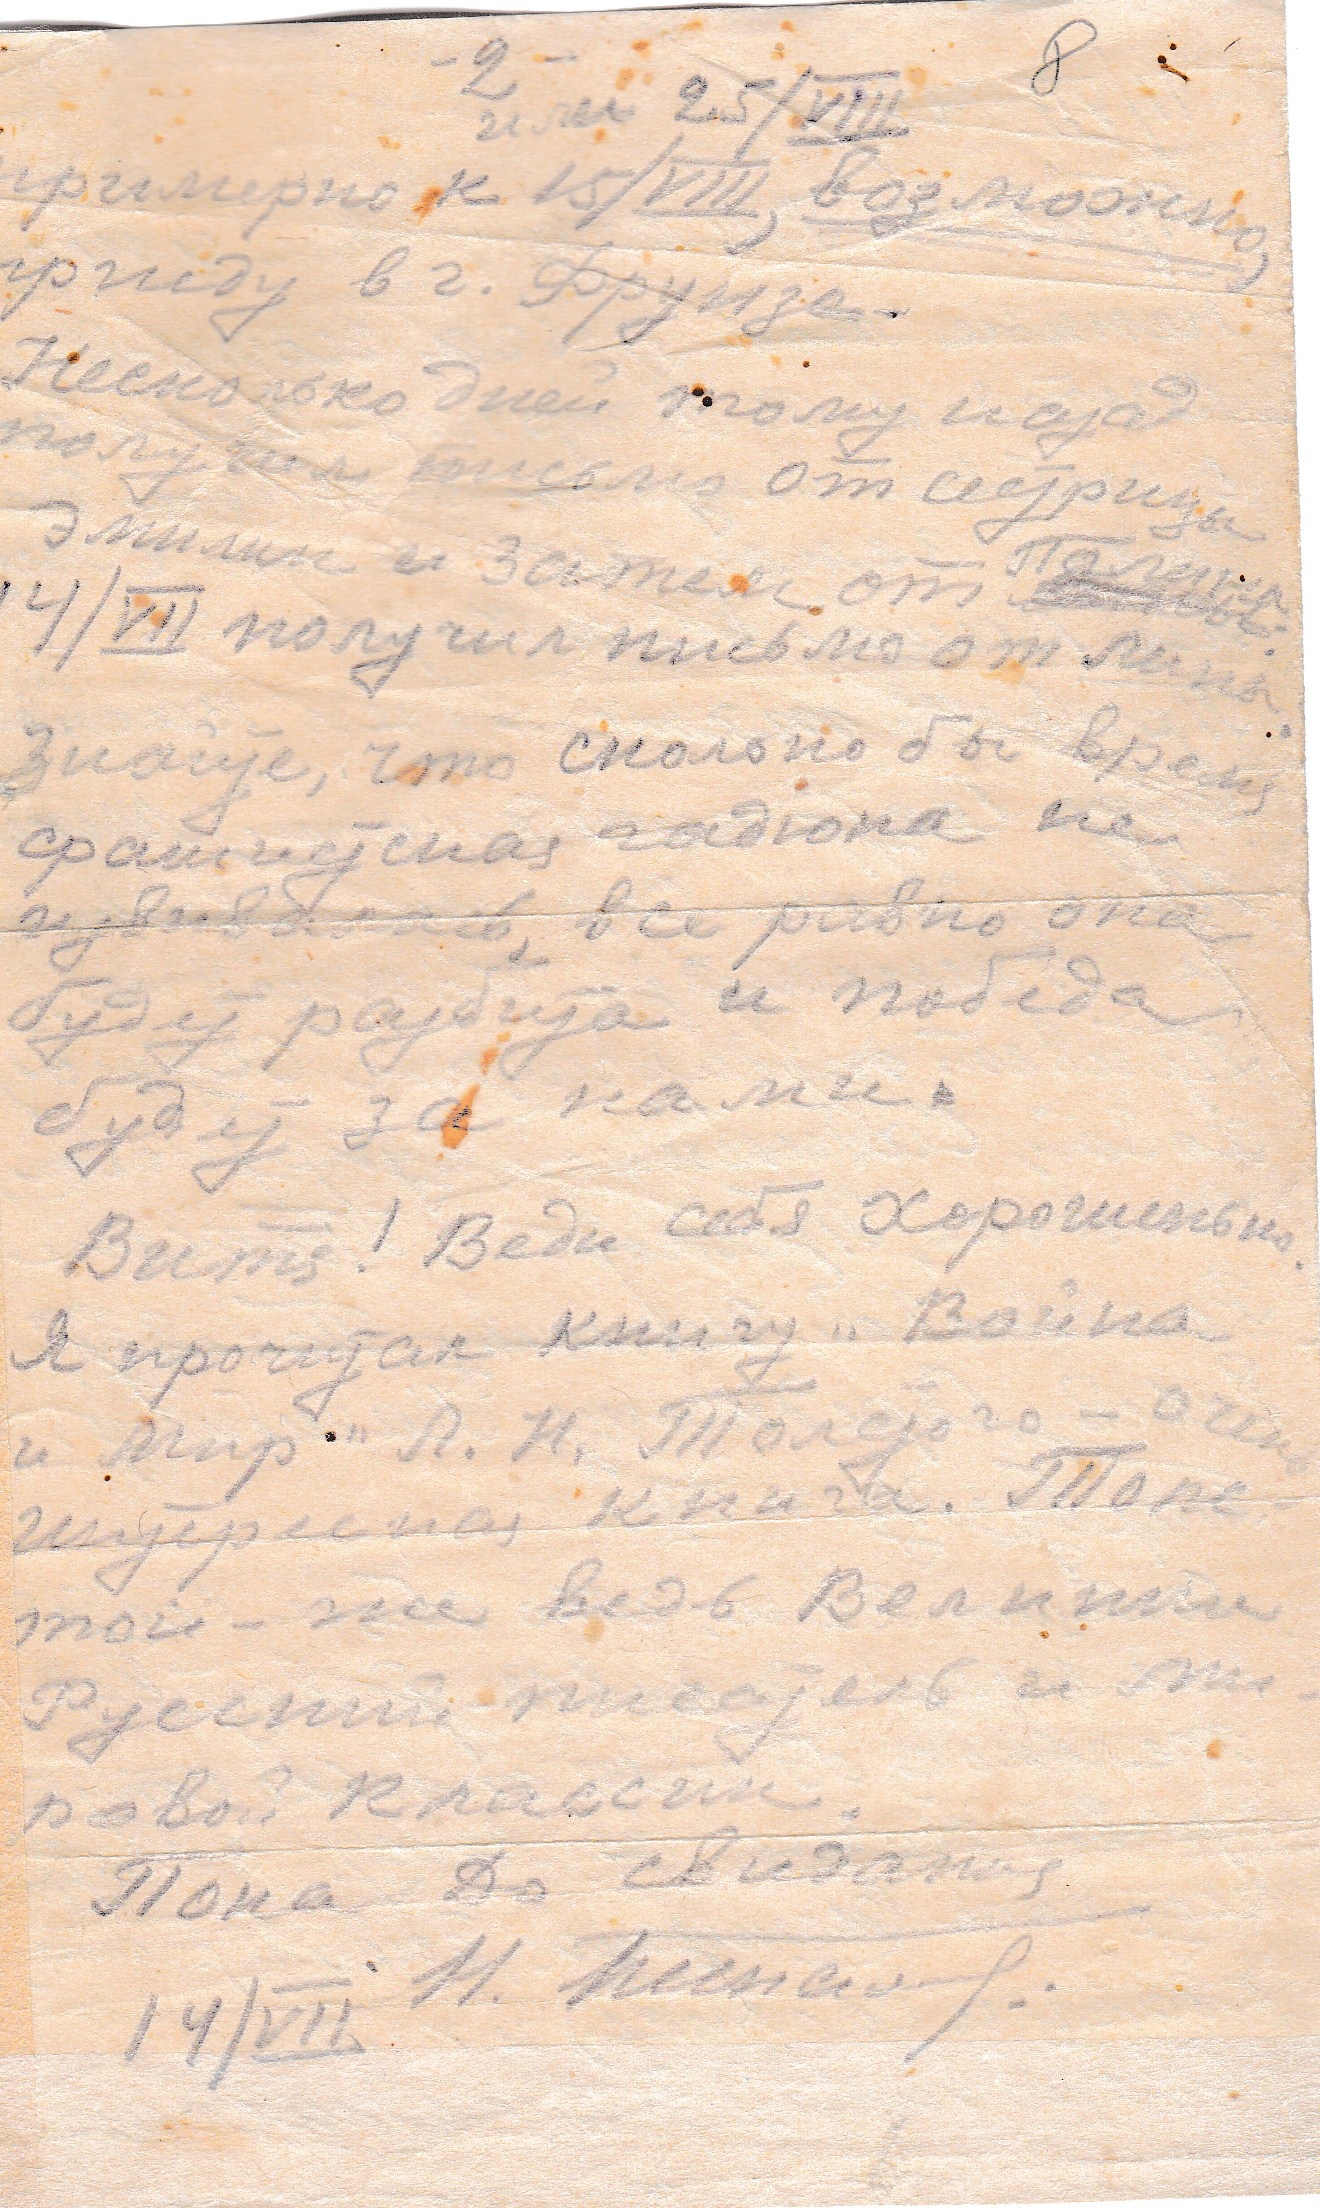 -2- 8
или 25/VIII
примерно к 15/VIII, возможно,
приеду в г. Фрунзе.
Несколько дней тому назад
получил письмо от сестрицы
Эмилии и затем от Полины
14/VII получил письмо от Лины.
Знайте, что сколько бы время
фашистская гадюка не
извивалась, все равно она
будет разбита и победа
будет за нами.
Витя! Веди себя хорошенько.
Я прочитал книгу „Война
и Мир" Л. Н. Толстого - очень
интересная книга. Толс-
той - же ведь Великий
Русский писатель и ми-
ровой классик.
Пока До свидания
Н.
14/VII